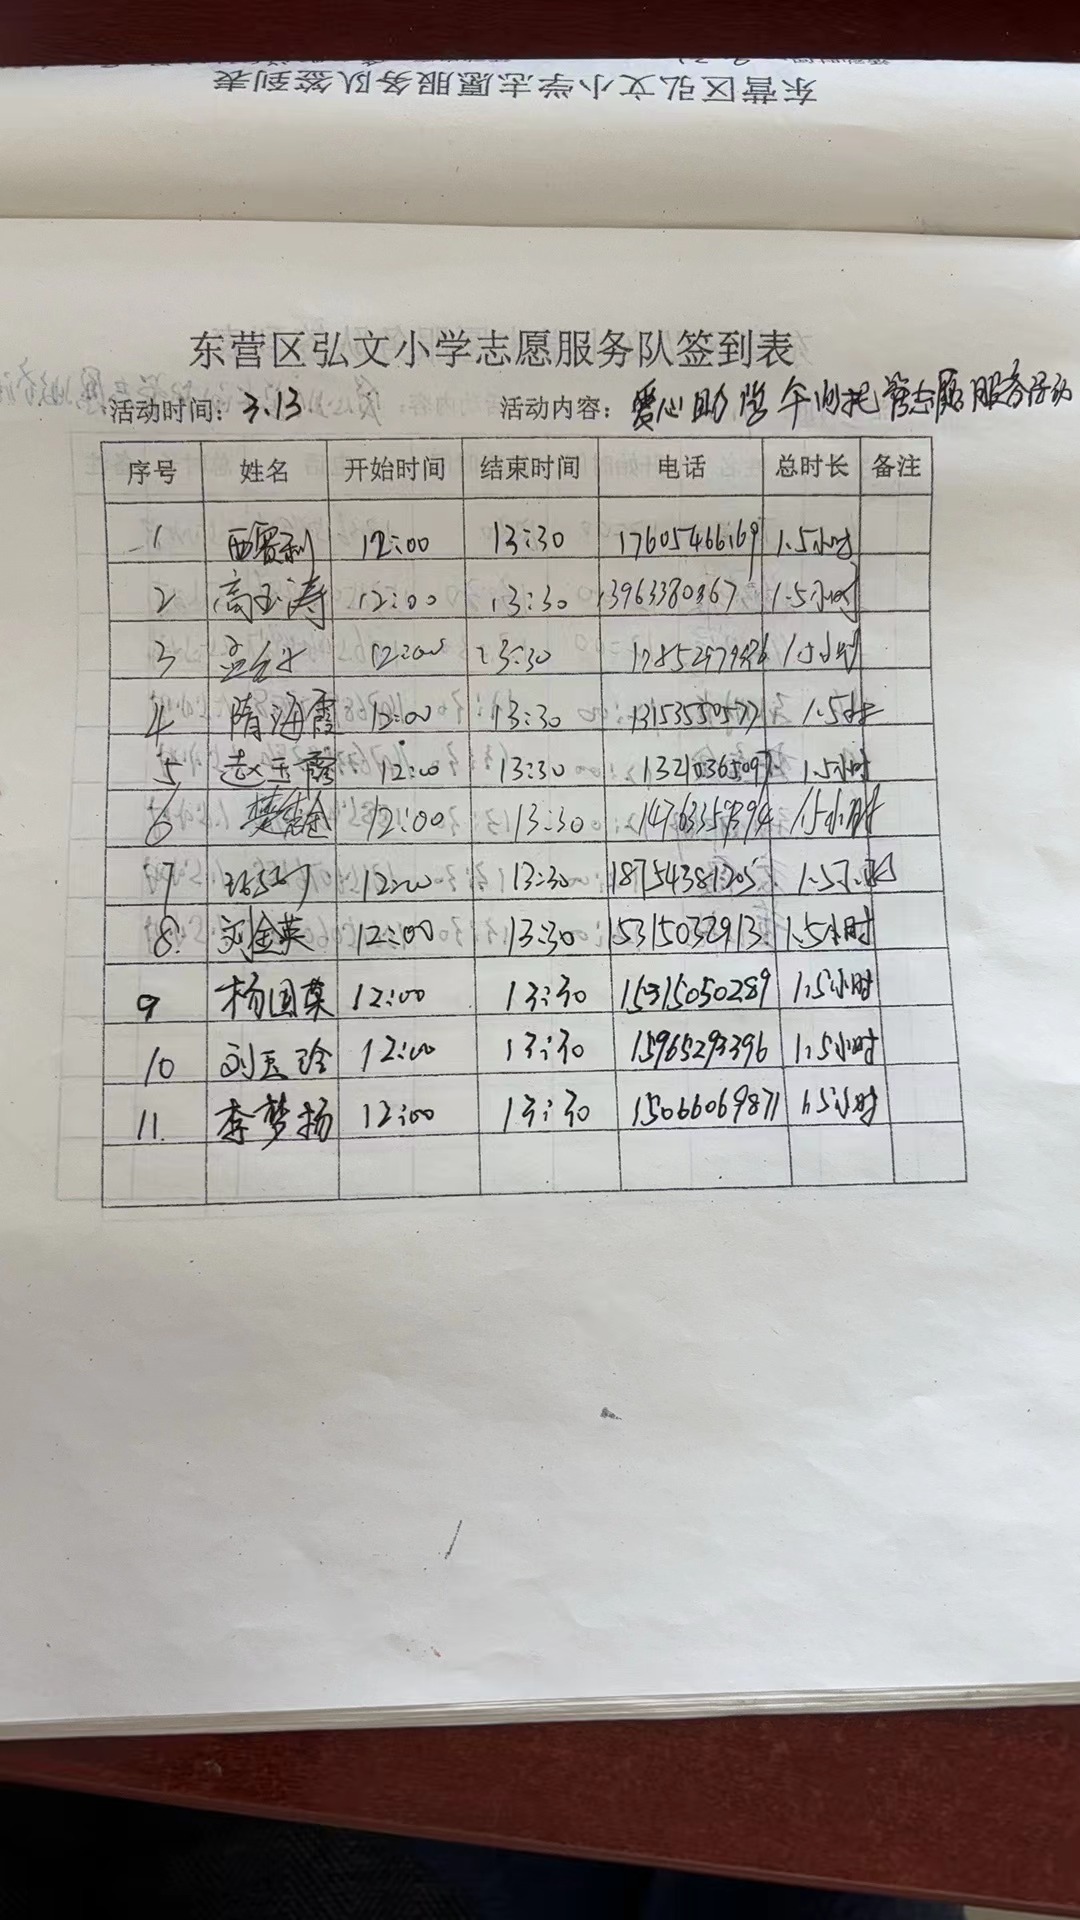 东营区弘文小学志愿服务队签到表
东营区弘文小学志愿服务队签到表
活动时间：3.13 活动内容：爱心助学午间托管志愿服务活动
序号 姓名 开始时间 结束时间 电话 总时长 备注
1 12:00 13:30 17605466169 1.5小时
2 高玉涛 12:00 13:30 13963380367 1.5小时
3 12:00 13:30 1.5小时
4 隋海霞 12:00 13:30 13153550577 1.5小时
5 赵玉霞 12:00 13:30 1.5小时
6 12:00 13:30 14763359394 1.5小时
7 12:00 13:30 18754381705 1.5小时
8 刘金英 12:00 13:30 15315032913 1.5小时
9 杨国英 12:00 13:30 15315050289 1.5小时
10 刘玉玲 12:00 13:30 15965293396 1.5小时
11 李梦杨 12:00 13:30 15066069871 1.5小时